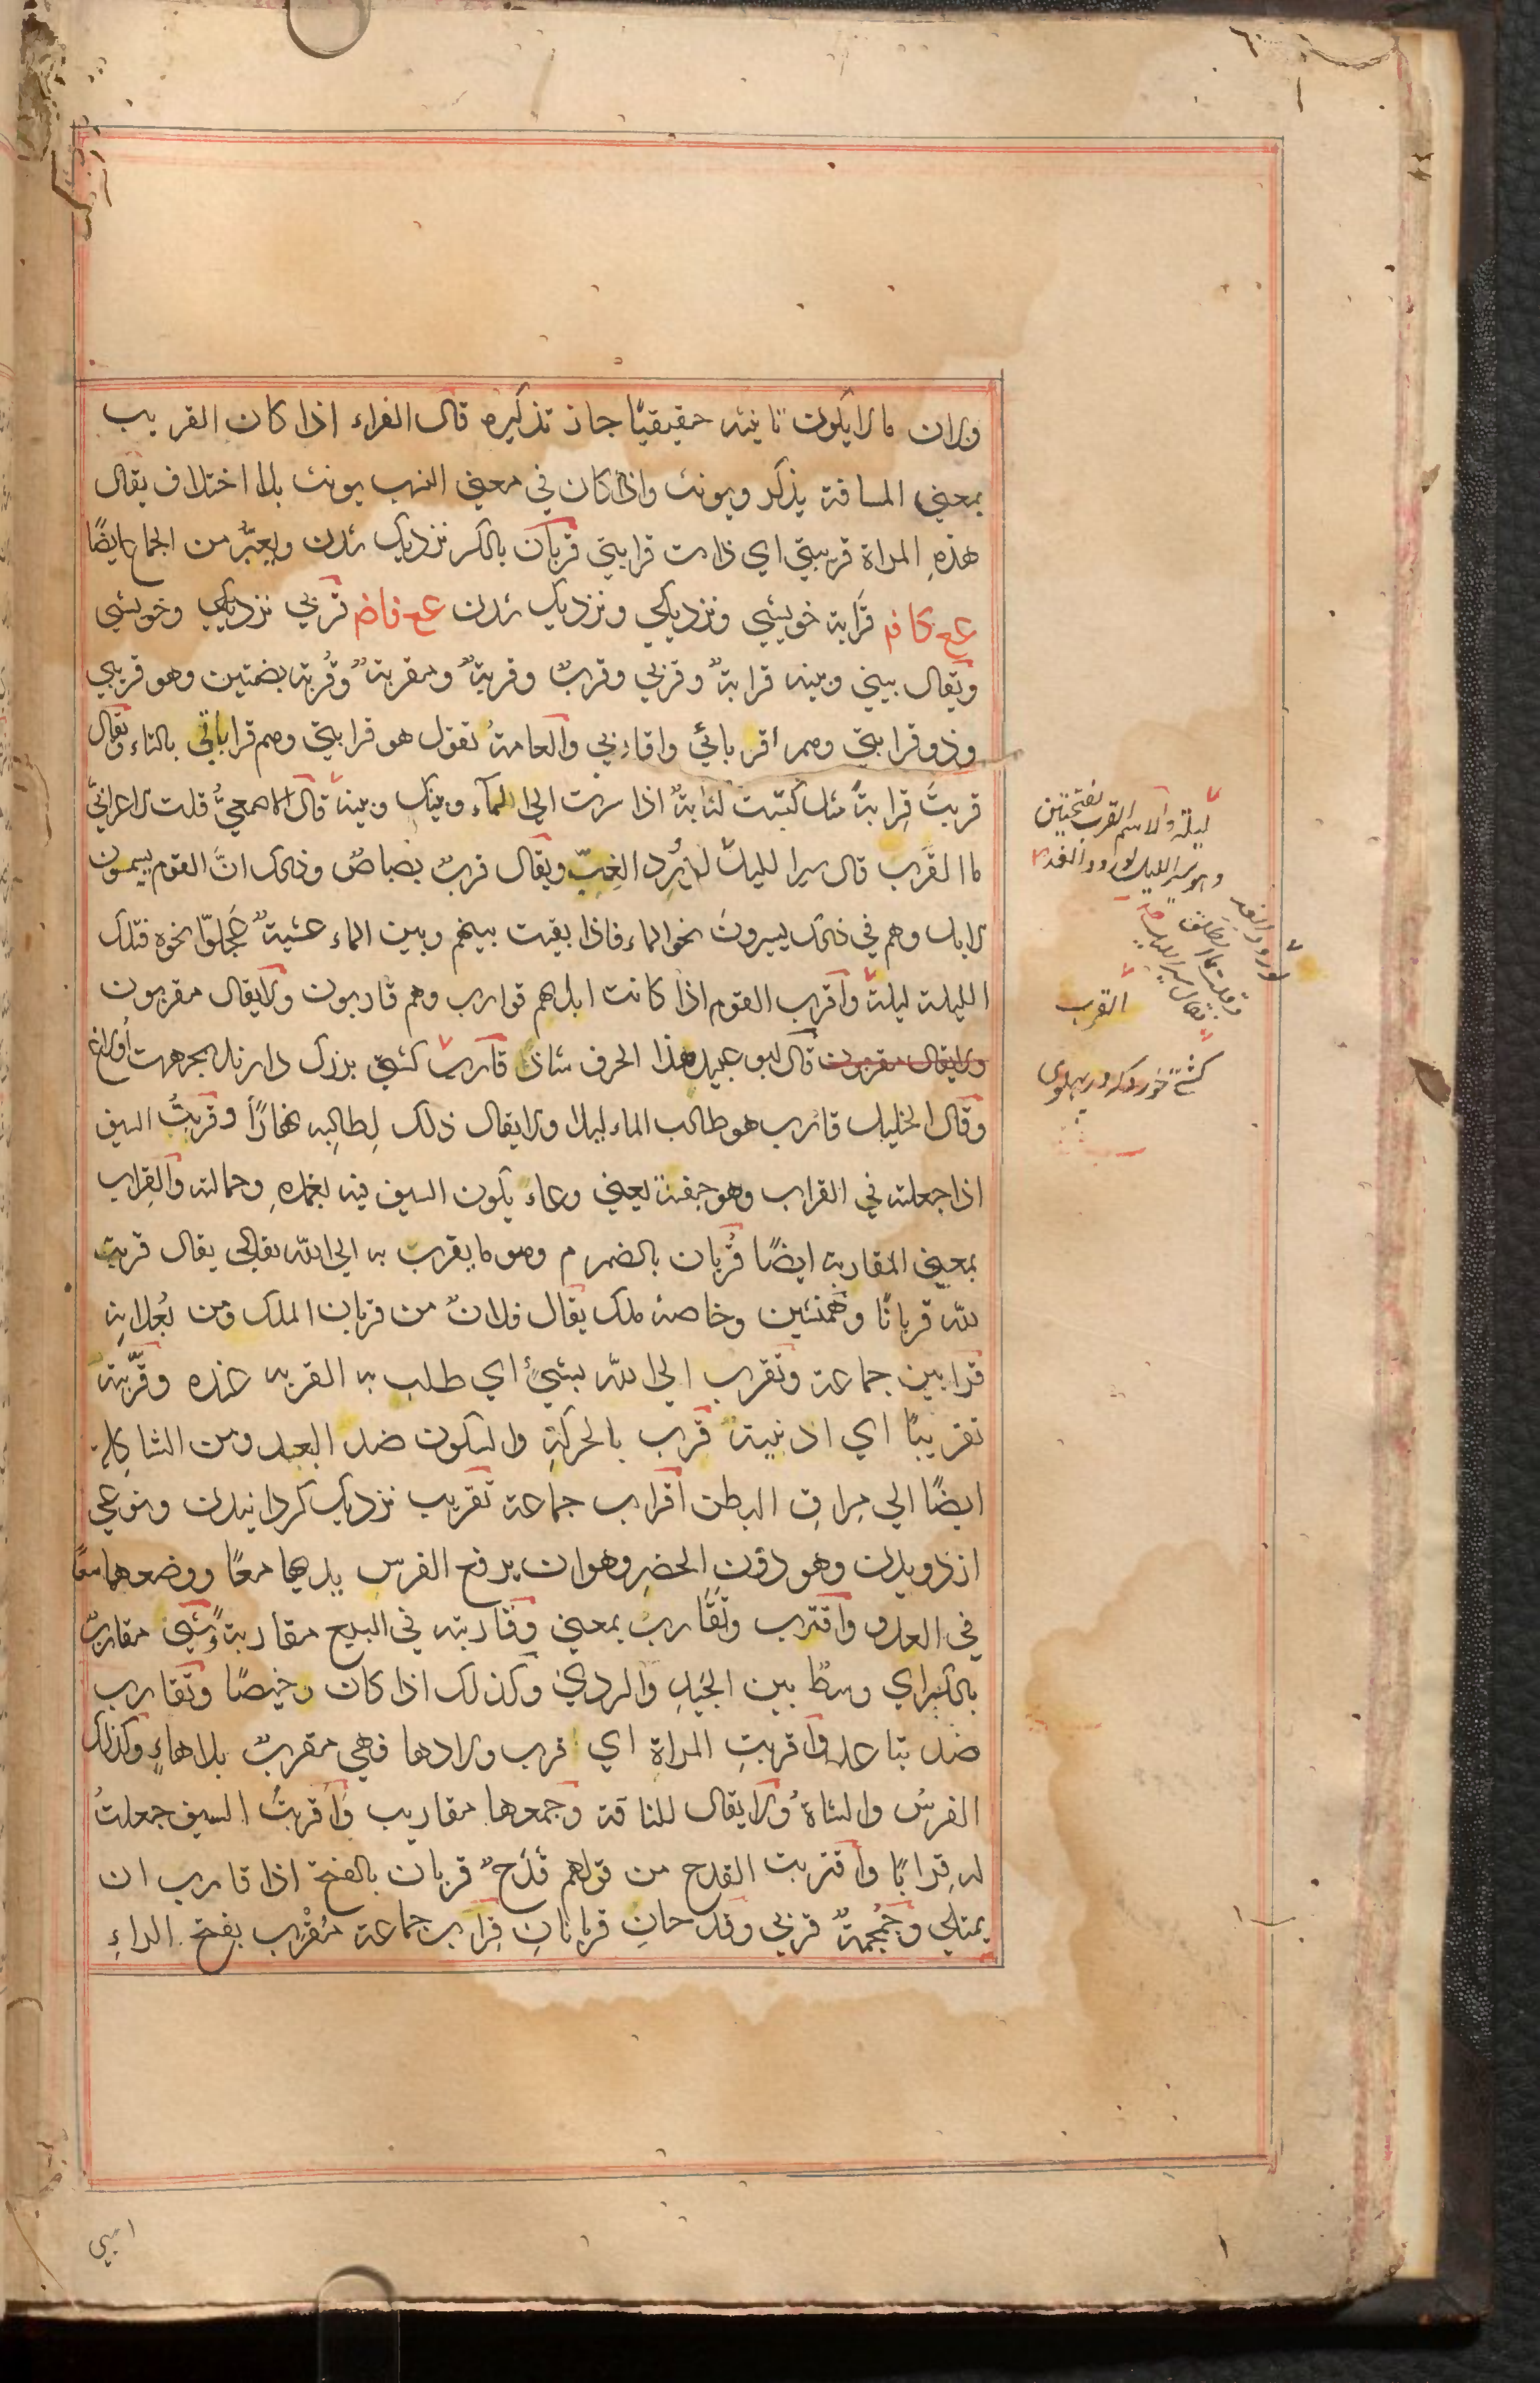 ولان ما لايكون تانيثه حقيقيًا جاز تذكيره قال الفراء اذا كان القريب
بمعني المسافة يذكر ويونث واذا كان في معني النسب يونث بلا اختلاف يقال
هذهِ المراة قريبتي اي ذات قرابتي قربان بالكسر نزديك شدن ويعبّر من الجماع ايضًا
مع كافم قَرابة خويشي ونزديكي ونزديك شدن مع فاضم قربي نزديكي وخويشي
ويقال بيني وبينه قرابةٌ وقربي وقربٌ وقربةٌ ومقربةٌ وقُربة بضمتين وهو قريبي
وذو قرابتي وهم أقربائي واقاربي والعامةُ تقول هو قرابتي وهم قراباتي بالتاء ويقال
قربتَ قِرابةً مثل كتبت كتابةً اذا سرت الي الماء وبينك وبينه قال الاصمعيُّ قلت لاعرابيّ
ما القَرَب قال سير الليل لوِرْد الغِبّ ويقال قربٌ بصباصٌ وذلك انَّ القوم يسيمون
الابل وهم في ذلك يسيرونَ نحو الماء فاذا بقيت بينهم وبين الماء عشيةٌ عَجّلوا نحوه فتلك
الليلة ليلة وأقرب القوم اذا كانت ابلهم قوارب وهم قاربون ولايقال مقربون
ولايقال مقربون قال ابو عبيد هذا الحرف شاذ قارب كشتي بزرك دارند بجرهت أوزاغ
وقال الخليل قارب هو طالب الماء ليلا ولايقال ذلك لِطالِبِه نهارًا وقربتُ السيف
اذا جعلته في القراب وهو جفنة يعني وعاءٌ يكون السيف فيه بغمدهِ وحمالته والقراب
بمعني المقاربة ايضًا قُربان بالضم م وهو ما يقرب به الي الله تعالي يقال قربت
لله قربانًا وهمنشين وخاصه ملك يقال فلانٌ من قربان الملك ومن بُعدانهِ
قرابين جماعة وتقرب الي الله بشيءٍ اي طلب به القربه عنده وقرّبته
تقريبًا اي ادنيته قرب بالحركةِ والسكون ضد البعد ومن الشاكلة
ايضًا الي مراق البطن أقراب جماعة تقريب نزديك كردانيدن ونوعي
از دويدن وهو دون الحضر وهو ان يرفع الفرس يديهما معًا ووضعهما معًا
في العدو واقترب وتقارب بمعني وقاربته في البيع مقاربةً وشيئ مقاربٌ
بالكسر اي وسط بين الجيد والردي وكذلك اذا كان رخيصًا وتقارب
ضد تباعد وأقربتِ المراة اي قرب ولادها فهي مقربٌ بلا هاءٍ وكذلك
الفرسُ والشاةُ ولا يقال للناقة وجمعها مقاريب وأقربتُ السيف جعلتُ
له قِرابًا وأقتربت القدح من قولهم قَدَحٌ قربان بالفتح اذا قارب ان
يمتلي وجُمجُمةٌ قربي وقدحانِ قربانانِ قِراب جماعة مُقْرَب بفتح الراءِ
ليلة والاسم القرب بفتحتين
وهو سير الليل لورود الغد
لورود الغد
القرب
كشتي خورد كه در پهلوى